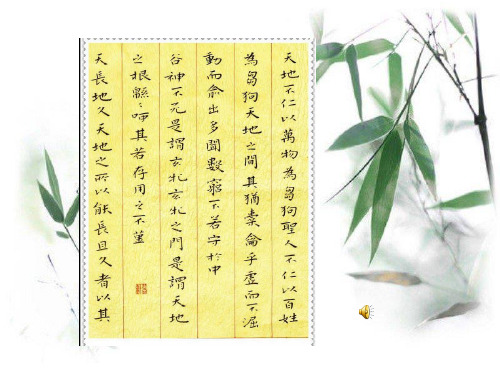 天地不仁以萬物為芻狗聖人不仁以百姓
為芻狗天地之間其猶橐龠乎虛而不淈
動而俞出多聞數窮不若守於中
谷神不死是謂玄牝玄牝之門是謂天地
之根緜〻呼其若存用之不堇
天長地久天地之所以能長且久者以其